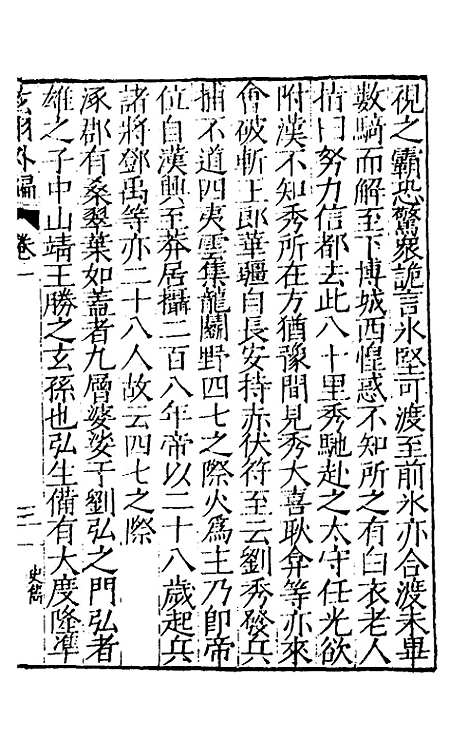 視之霸恐驚衆詭言氷堅可渡至前氷亦合渡未畢
數騎而解至下博城西惶惑不知所之有白衣老人
指曰努力信都去此八十里秀馳赴之太守任光欲
附漢不知秀所在方猶豫間見秀大喜耿弇等亦來
會破斬王郎華疆自長安持赤伏符至云劉秀發兵
捕不道四夷雲集龍鬭野四七之際火爲主乃卽帝
位自漢興至莽居攝二百八年帝以二十八歲起兵
諸將鄧禹等亦二十八人故云四七之際
涿郡有桑翠葉如蓋者九層婆娑于劉弘之門弘者
雄之子中山靖王勝之玄孫也弘生備有大度隆準
外編 卷一